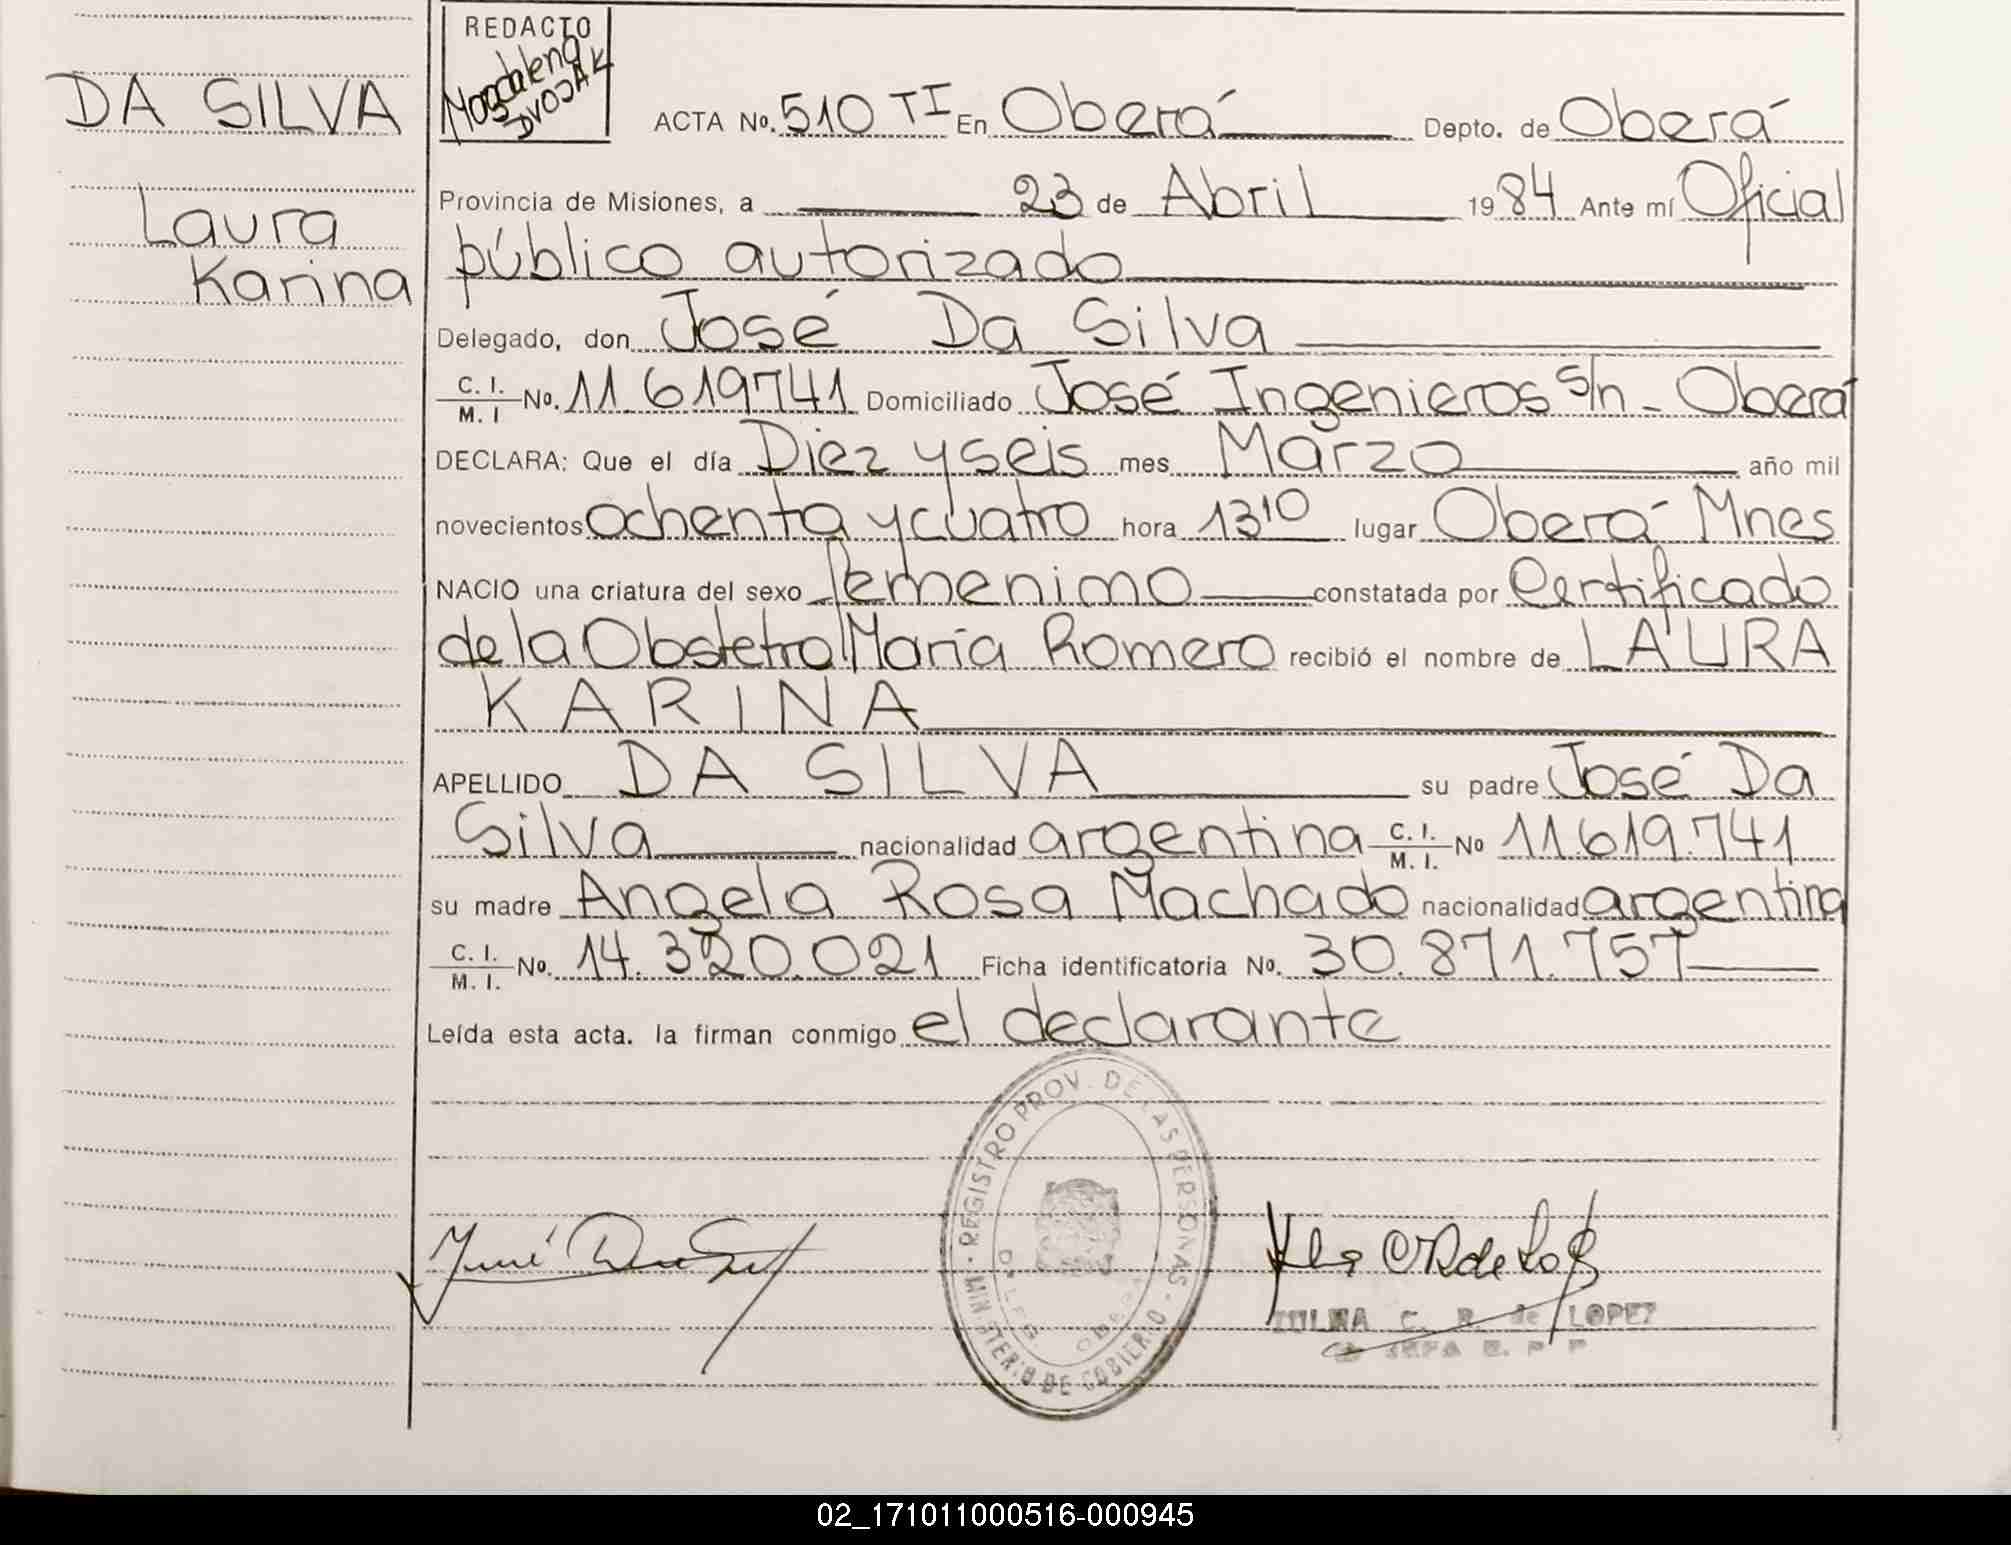 DA SILVA
Laura
Karina
REDACTO
Magdalena
DVOJAK
ACTA No. 510 TI En Oberá Depto. de Oberá
Provincia de Misiones, a 23 de Abril 1984 Ante mí Oficial
público autorizado
Delegado, don José Da Silva
C. I. / M. I No. 11.619741 Domiciliado José Ingenieros s/n - Oberá
DECLARA: Que el día Diez y seis mes Marzo año mil
novecientos ochenta y cuatro hora 13 10 lugar Oberá Mnes
NACIO una criatura del sexo femenino constatada por Certificado
de la Obstetra María Romero recibió el nombre de LAURA
KARINA
APELLIDO DA SILVA su padre José Da
Silva nacionalidad argentina C. I. / M. I. No 11.619.741
su madre Angela Rosa Machado nacionalidad argentina
C. I. / M. I. No. 14.320.021 Ficha identificatoria No. 30.871.757
Leída esta acta. la firman conmigo el declarante
REGISTRO PROV. DE LAS PERSONAS
MINISTERIO DE GOBIERNO
OBERA
ZULMA C. R. de LOPEZ
JEFA
02_171011000516-000945